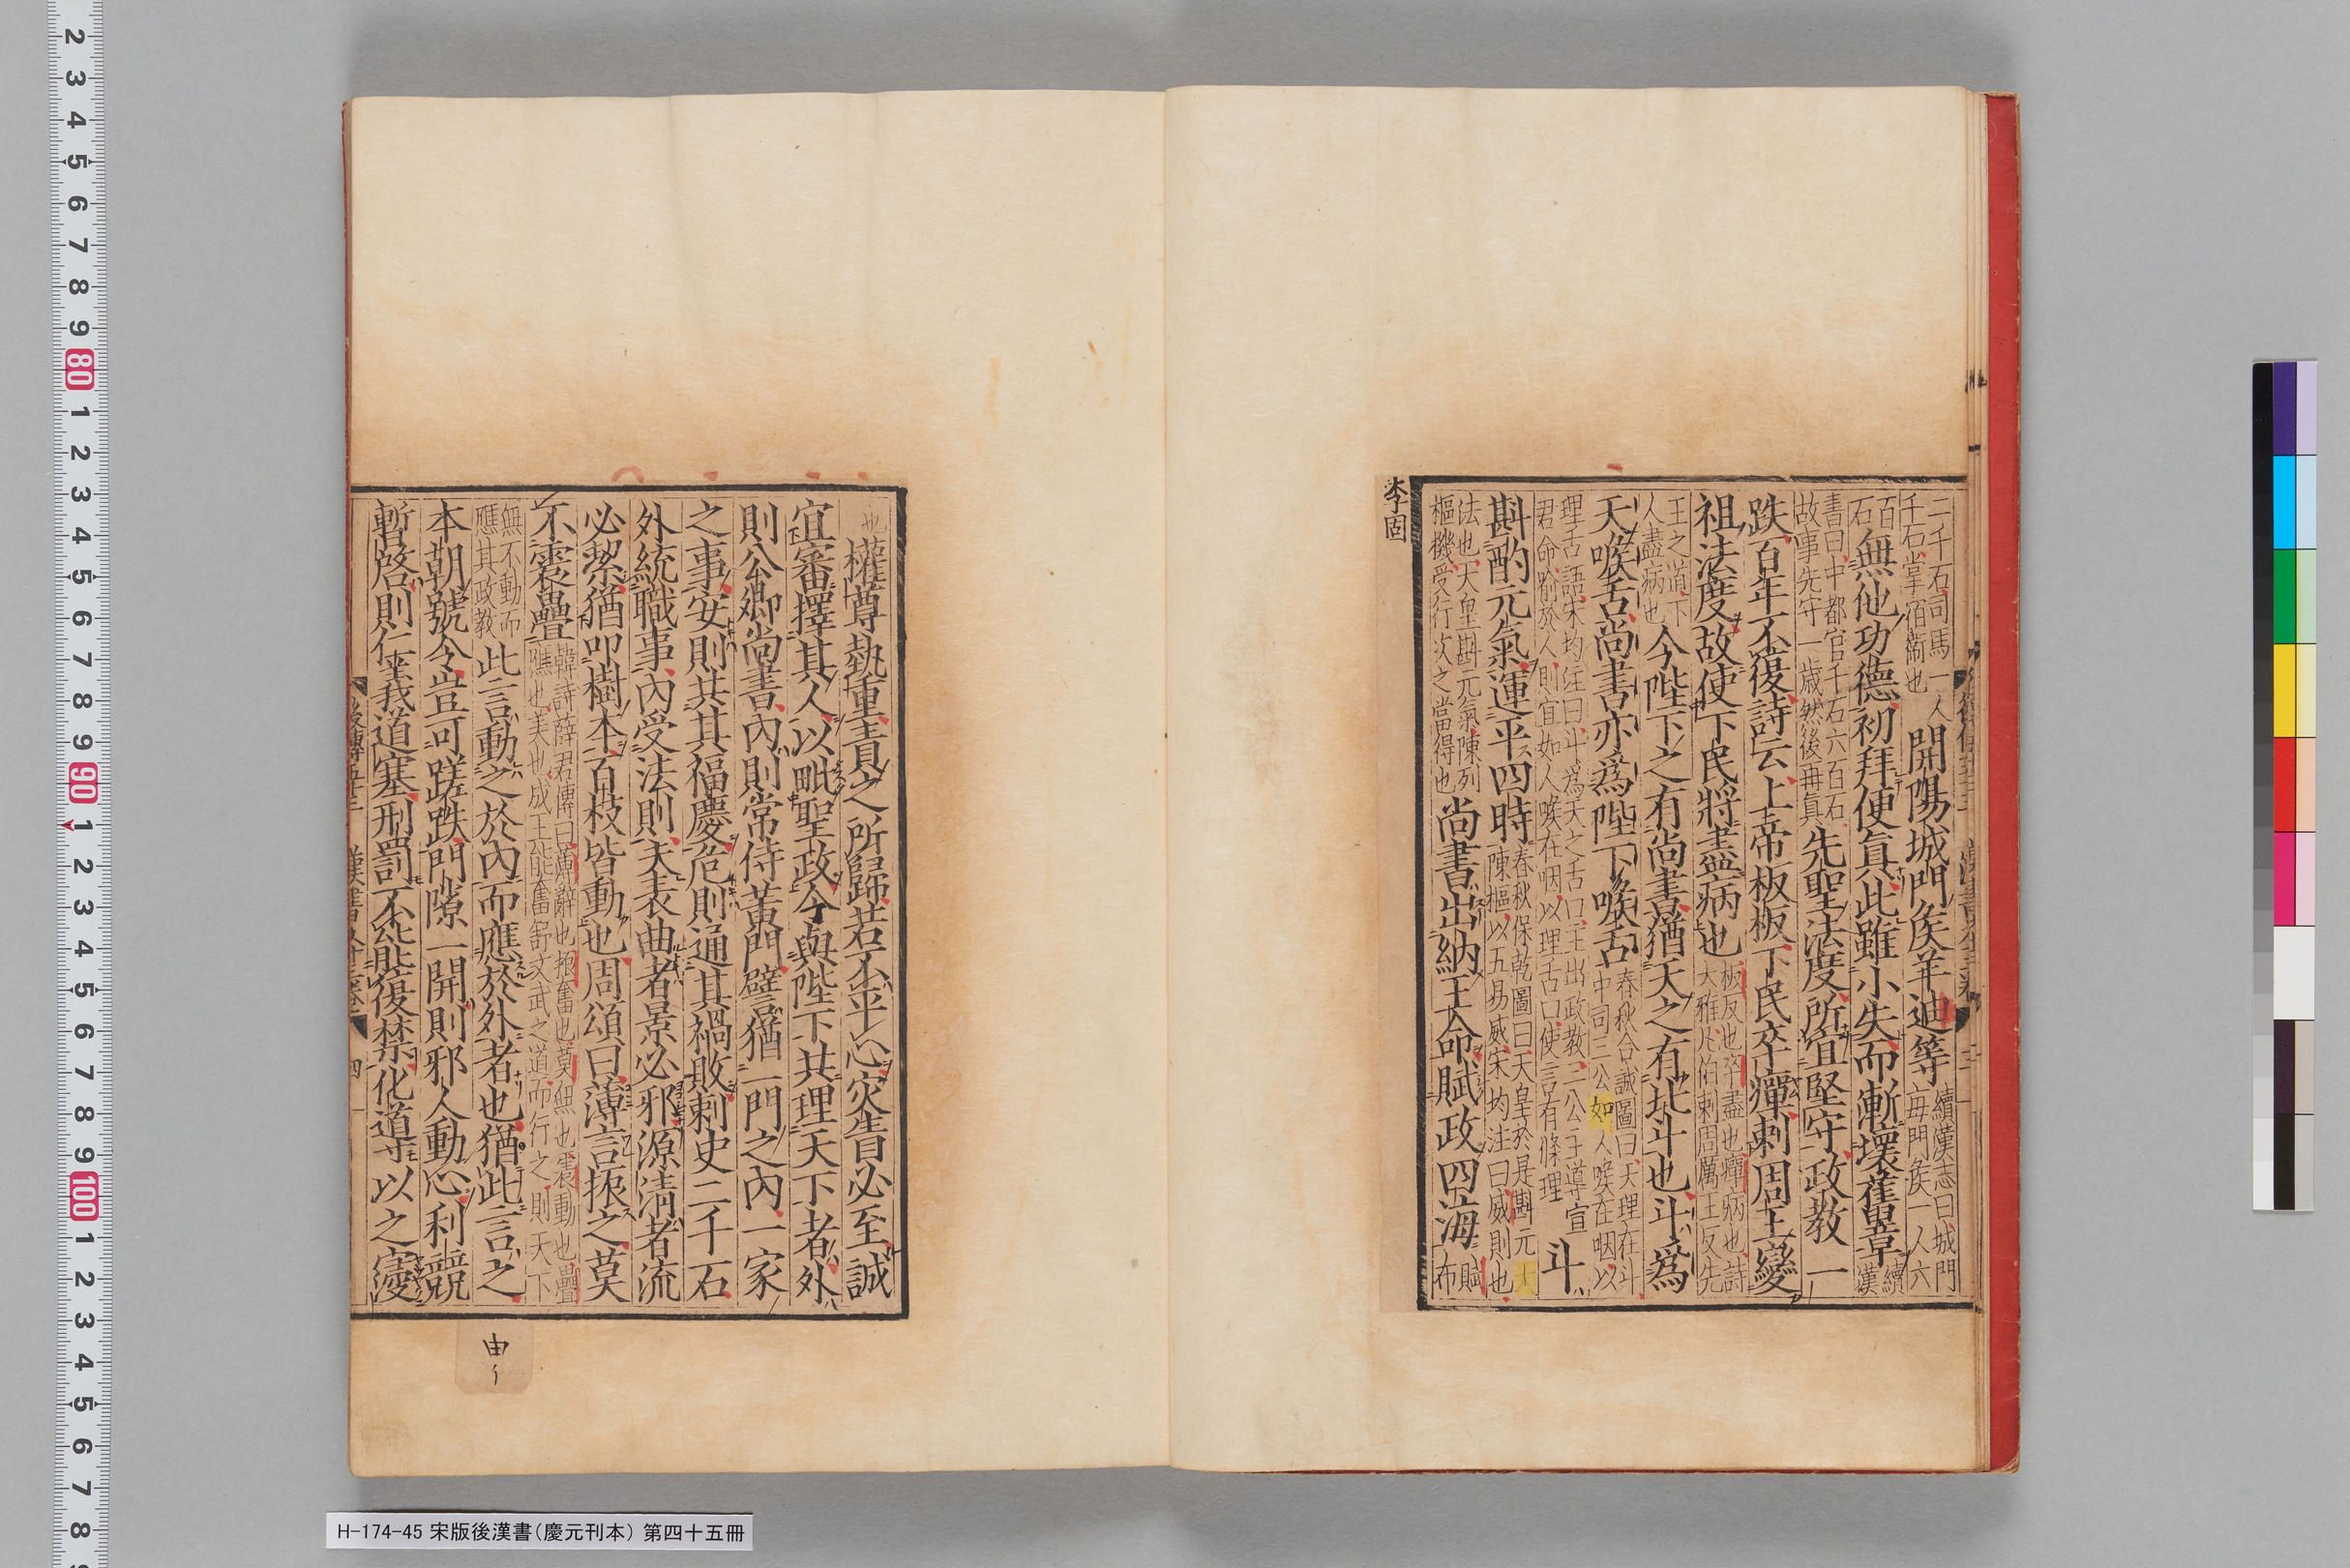 二千石司馬一人千石掌宿衞也開陽城門侯羊迪等續漢志曰城門每門侯一人六
百石無他功德初拜便真此雖小失而漸壞舊章續漢
書曰中都官千石六百石故事先守一歲然後再真先聖法度所宜堅守政教一
跌百年不復詩云上帝板板下民卒癉刺周王變
祖法度故使下民將盡病也板反也卒盡也癉病也詩大雅凡伯刺周厲王反先
王之道下人盡病也今陛下之有尚書猶天之有北斗也斗爲
天喉舌尚書亦爲陛下喉舌春秋合誠圖曰天理在斗中司三公如人喉在咽以
理舌語宋均注曰斗爲天之舌口主出政教三公主導宣君命喻於人則宜如人喉在咽以理舌口使言有條理斗
斟酌元氣運平四時春秋保乾圖曰天皇於是斟元陳樞以五易威宋均注曰威則也
法也天皇斟元氣陳列樞機受行次之當得也尚書出納王命賦政四海賦布
李固
也權尊埶重責之所歸若不平心灾眚必至誠
宜審擇其人以毗聖政今與陛下共理天下者外
則公卿尚書內則常侍黃門譬猶一門之內一家
之事安則共其福慶危則通其禍敗刺史二千石
外統職事內受法則夫表曲者景必邪源清者流
必絜猶叩樹本百枝皆動也周頌曰薄言振之莫
不震疊韓詩薛君傳曰薄辭也振奮也莫無也震動也疊應也美也成王能奮舒文武之道而行之則天下
無不動而應其政教此言動之於內而應於外者也猶此言之
本朝號令豈可蹉跌門隙一開則邪人動心利競
暫啓則仁義道塞刑罰不能復禁化道導以之寖
後傳五十三 漢書六十三卷 四
申
H-174-45 宋版後漢書(慶元刊本) 第四十五冊